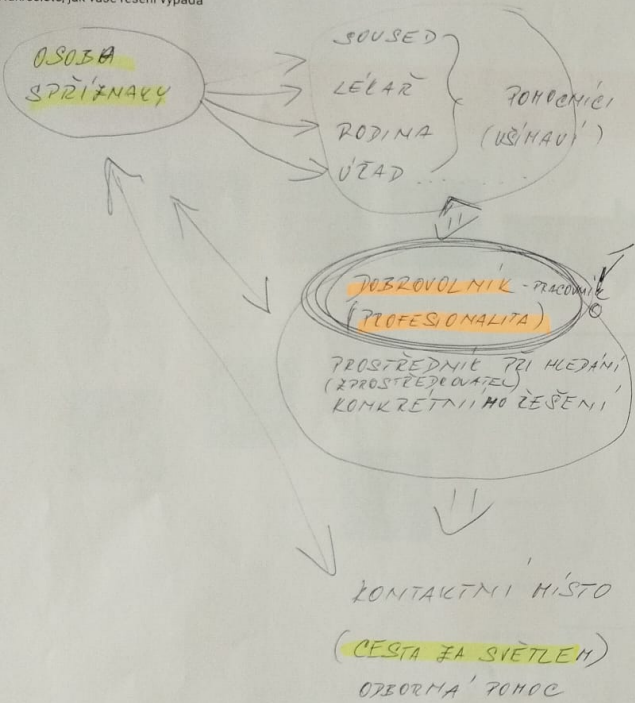 jak vaše řešení vypadá
OSOBA
S PŘÍZNAKY
SOUSED
LÉKAŘ
RODINA
ÚŘAD ..........
POMOCNÍCI
(VŠÍMAVÍ)
DOBROVOLNÍK - PRACOVNÍK
(PROFESIONALITA)
PROSTŘEDNÍK PŘI HLEDÁNÍ
(ZPROSTŘEDKOVATEL)
KONKRÉTNÍHO ŘEŠENÍ
KONTAKTNÍ MÍSTO
(CESTA ZA SVĚTLEM)
ODBORNÁ POMOC